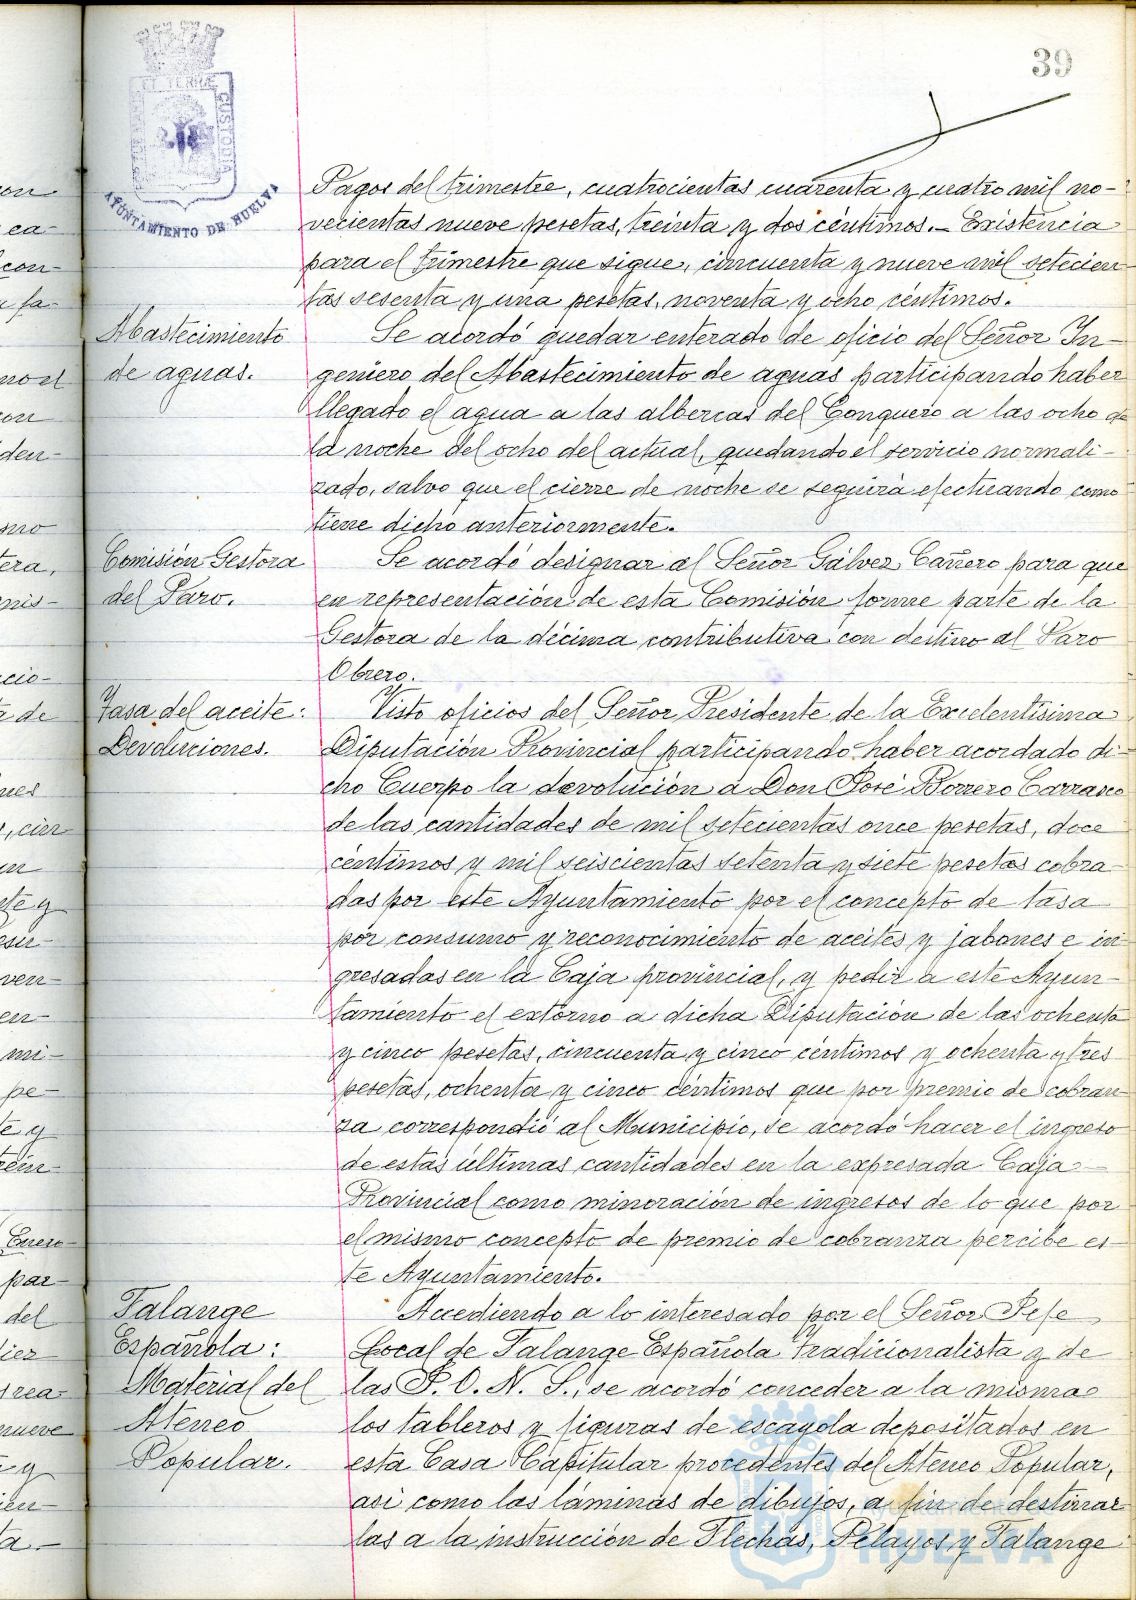 39
ET TERRAE
CUSTODIA
AYUNTAMIENTO DE HUELVA
Pagos del trimestre, cuatrocientas cuarenta y cuatro mil no-
vecientas nueve pesetas, treinta y dos céntimos.- Existencia
para el trimestre que sigue, cincuenta y nueve mil setecien-
tas sesenta y una pesetas, noventa y ocho céntimos.
Abastecimiento
de aguas.
Se acordó quedar enterado de oficio del Señor In-
geniero del Abastecimiento de aguas participando haber
llegado el agua a las albercas del Conquero a las ocho de
la noche del ocho del actual, quedando el servicio normali-
zado, salvo que el cierre de noche se seguirá efectuando como
tiene dicho anteriormente.
Comisión Gestora
del Paro.
Se acordó designar al Señor Gálvez Cañero para que
en representación de esta Comisión forme parte de la
Gestora de la décima contributiva con destino al Paro
Obrero.
Tasa del aceite:
Devoluciones.
Visto oficios del Señor Presidente de la Excelentísima
Diputación Provincial participando haber acordado di-
cho Cuerpo la devolución a Don José Borrero Carrasco
de las cantidades de mil setecientas once pesetas, doce
céntimos y mil seiscientas setenta y siete pesetas cobra-
das por este Ayuntamiento por el concepto de tasa
por consumo y reconocimiento de aceites y jabones e in-
gresadas en la Caja provincial, y pedir a este Ayun-
tamiento el extorno a dicha Diputación de las ochenta
y cinco pesetas, cincuenta y cinco céntimos y ochenta y tres
pesetas, ochenta y cinco céntimos que por premio de cobran-
za correspondió al Municipio, se acordó hacer el ingreso
de estas últimas cantidades en la expresada Caja
Provincial como minoración de ingresos de lo que por
el mismo concepto de premio de cobranza percibe es-
te Ayuntamiento.
Falange
Española:
Material del
Ateneo
Popular.
Accediendo a lo interesado por el Señor Jefe
Local de Falange Española Tradicionalista y de
las J. O. N. S., se acordó conceder a la misma
los tableros y figuras de escayola depositados en
esta Casa Capitular procedentes del Ateneo Popular,
así como las láminas de dibujos, a fin de destinar-
las a la instrucción de Flechas, Pelayos y Falange
Ayuntamiento de
HUELVA